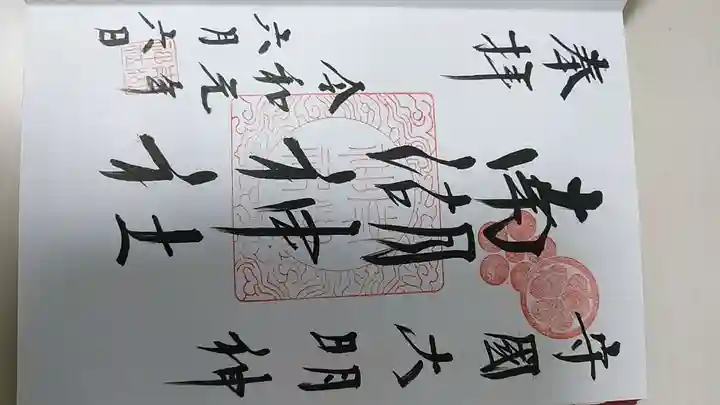 守國大明神
南湖神社
奉拝
令和元年
六月六日